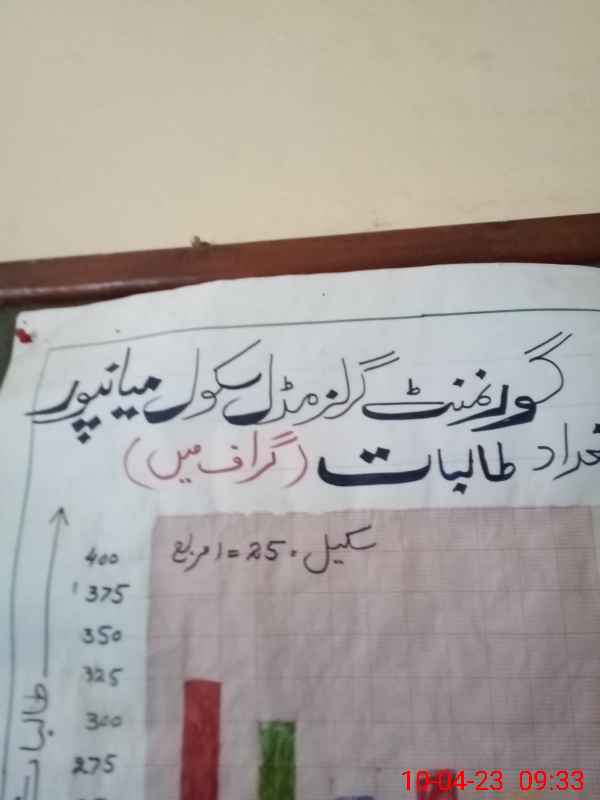 گورنمنٹ گرلز مڈل سکول میانپور
تعداد طالبات (گراف میں)
سکیل ۰ 25 = 1 مربع
400
375
350
325
300
275
طالبات
10-04-23 09:33